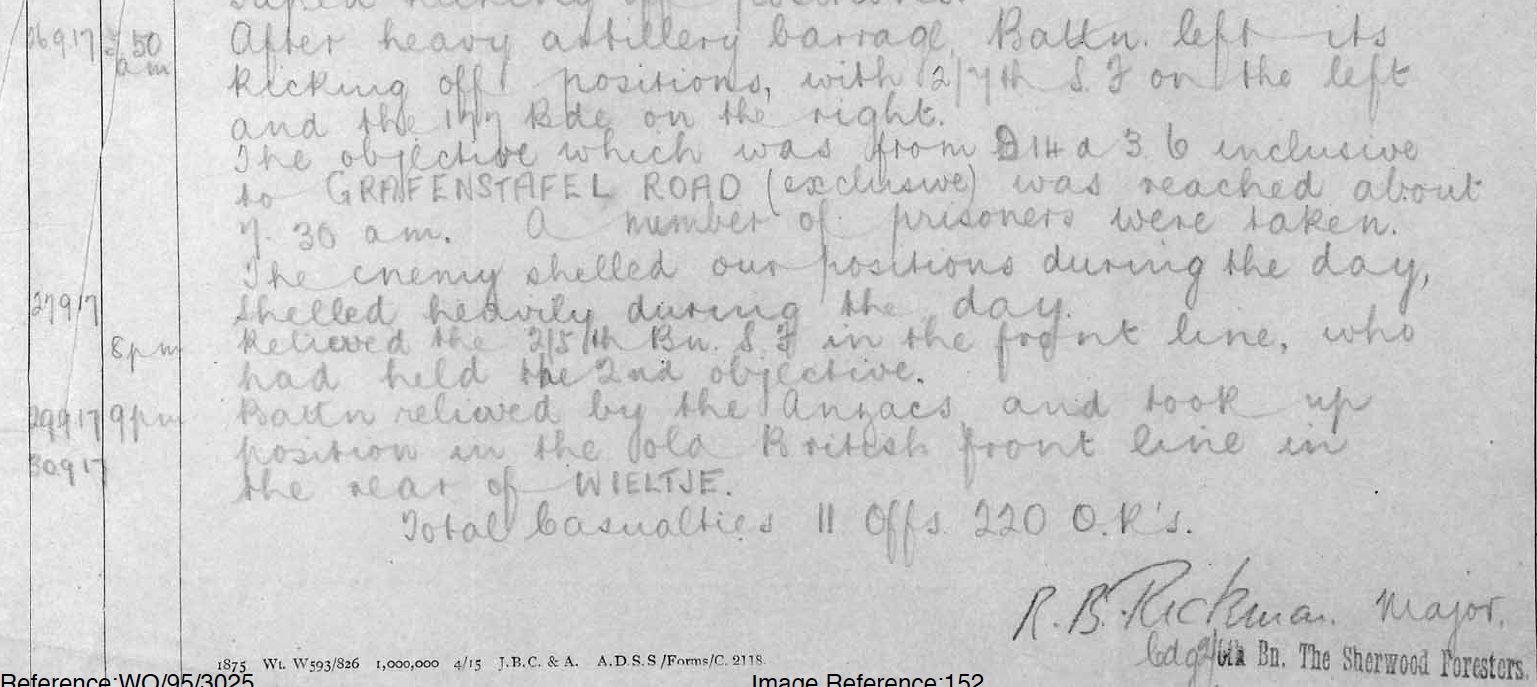 taped kicking off positions.
26917 5.50 After heavy artillery barrage, Battn. left its
am kicking off positions, with 2/7th S.F on the left
and the 177 Bde on the right.
The objective which was from D14 a 3 6 inclusive
to GRAFENSTAFEL ROAD (exclusive) was reached about
7.30 am. A number of prisoners were taken.
The enemy shelled our positions during the day,
27917 shelled heavily during the day.
8pm Relieved the 2/5th Bn. S.F in the front line, who
had held the 2nd objective.
29917 9pm Battn relieved by the Anzacs and took up
position in the old British front line in
30917 the rear of WIELTJE.
Total Casualties 11 Offs. 220 O.R's.
R.B. Rickman. Major,
Cdg 2/6th Bn. The Sherwood Foresters.
1875 Wt. W593/826 1,000,000 4/15 J.B.C. & A. A.D.S.S/Forms/C. 2118.
Reference:WO/95/3025 Image Reference:152